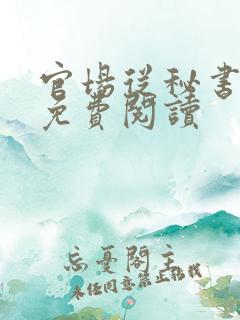 官場從秘書
免費閱讀
忘憂閣主
未任同意禁止結找